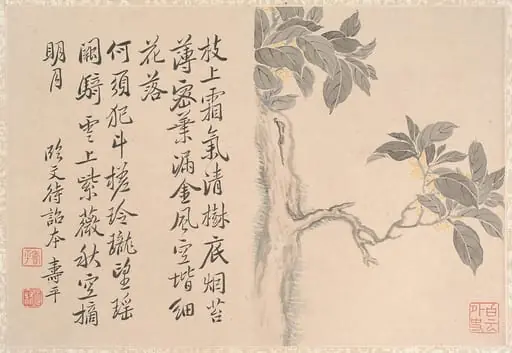 枝上霜氣清樹底烟苔
薄密葉漏金風空堦細
花落
何須犯斗槎玲瓏望瑶
闕騎雲上紫薇秋空摘
明月
臨文待詔本 壽平
白雲外史